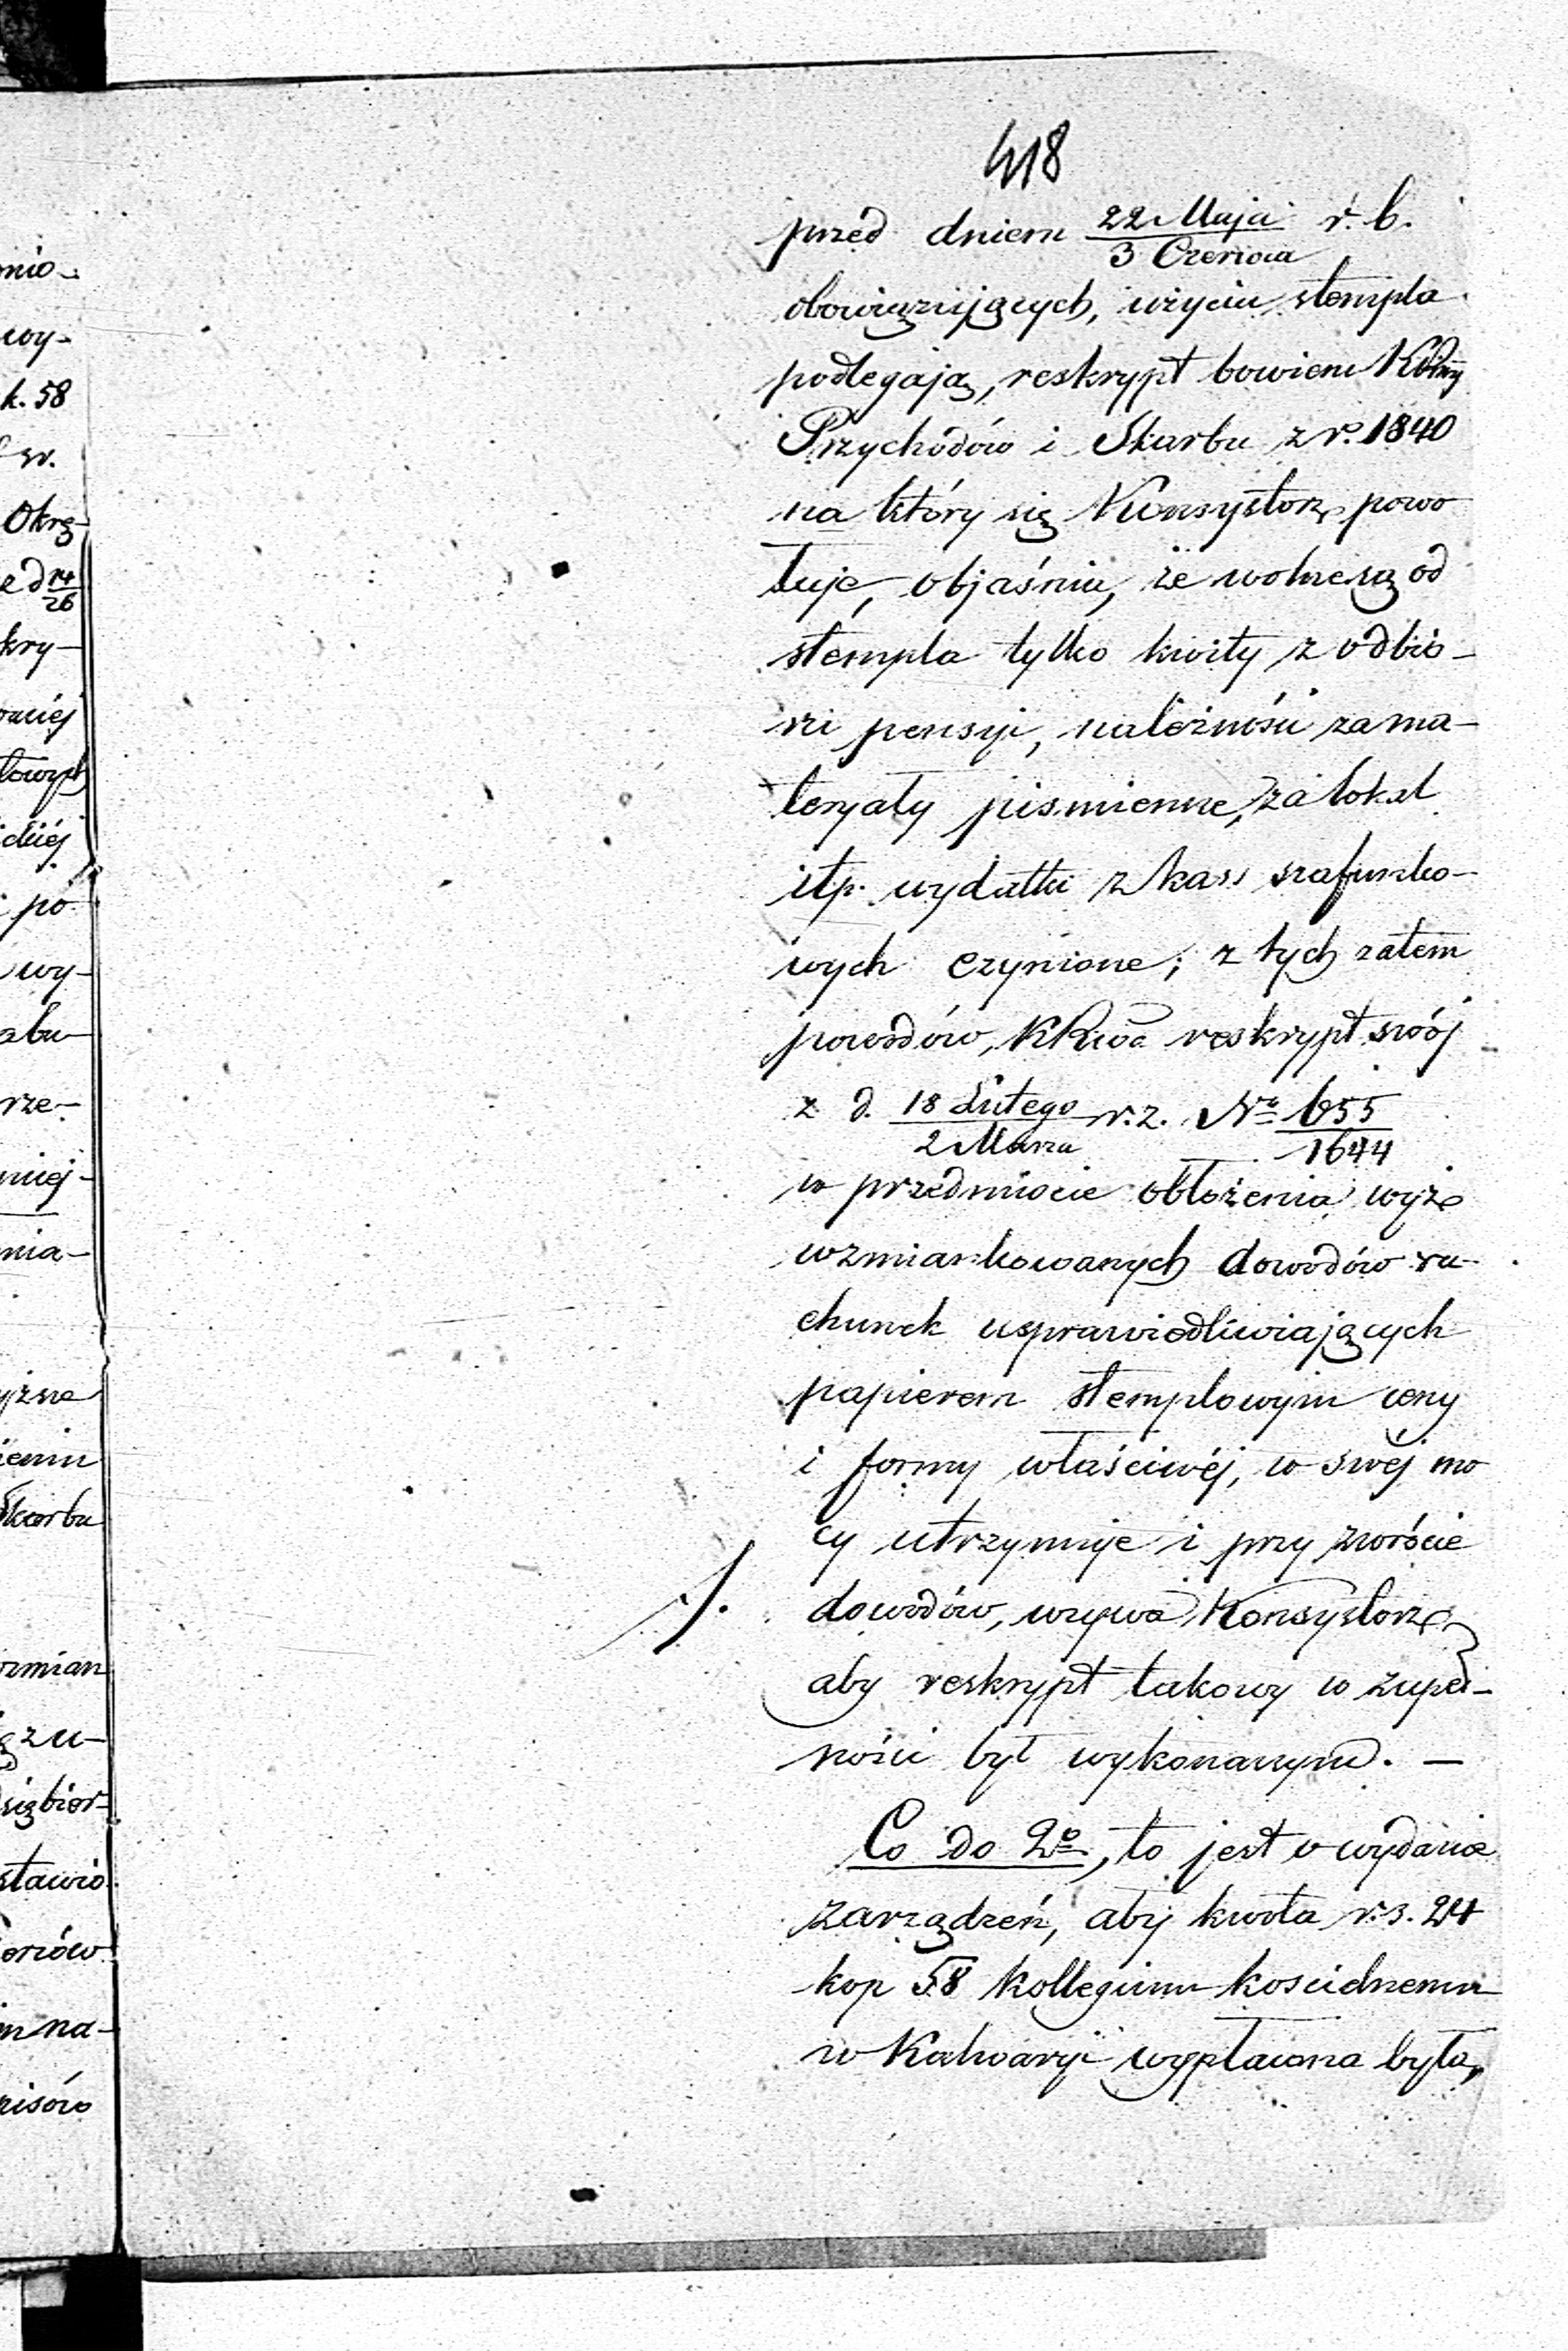 418
przed dniem 22 Maja / 3 Czerwca r. b.
obowiązujących, użyciu stempla
podlegają, reskrypt bowiem
Przychodów i Skarbu z r. 1840
na który się Konsystorz powo
łuje, objaśnia, że wolne są od
stempla tylko kwity z odbio-
ru pensyi, należności za ma-
teryały piśmienne, za lokal
itp. wydatki z kass szafunko-
wych czynione; z tych zatem
powodów, KRwa reskrypt swój
z d. 18 Lutego / 2 Marca r. z. No 655 / 1644
w przedmiocie obłożenia wyże
wzmiankowanych dowodów ra-
chunek usprawiedliwiających
papierem stemplowym ceny
i formy właściwéj, w swéj mo
cy utrzymuje i przy zwrócie
dowodów, wzywa Konsystorz,
aby reskrypt takowy w zupeł-
ności był wykonanym. —
Co do 2o, to jest o wydanie
zarządzeń, aby kwota r. s. 24
kop 58 Kollegium kościelnemu
w Kalwaryi wypłacona była,
nio-
wy-
k. 58
Okrę-
14 / 26
kry-
po
wy-
rze-
niej-
mia-
Skarbu
zmian
się bior-
stawió
na-